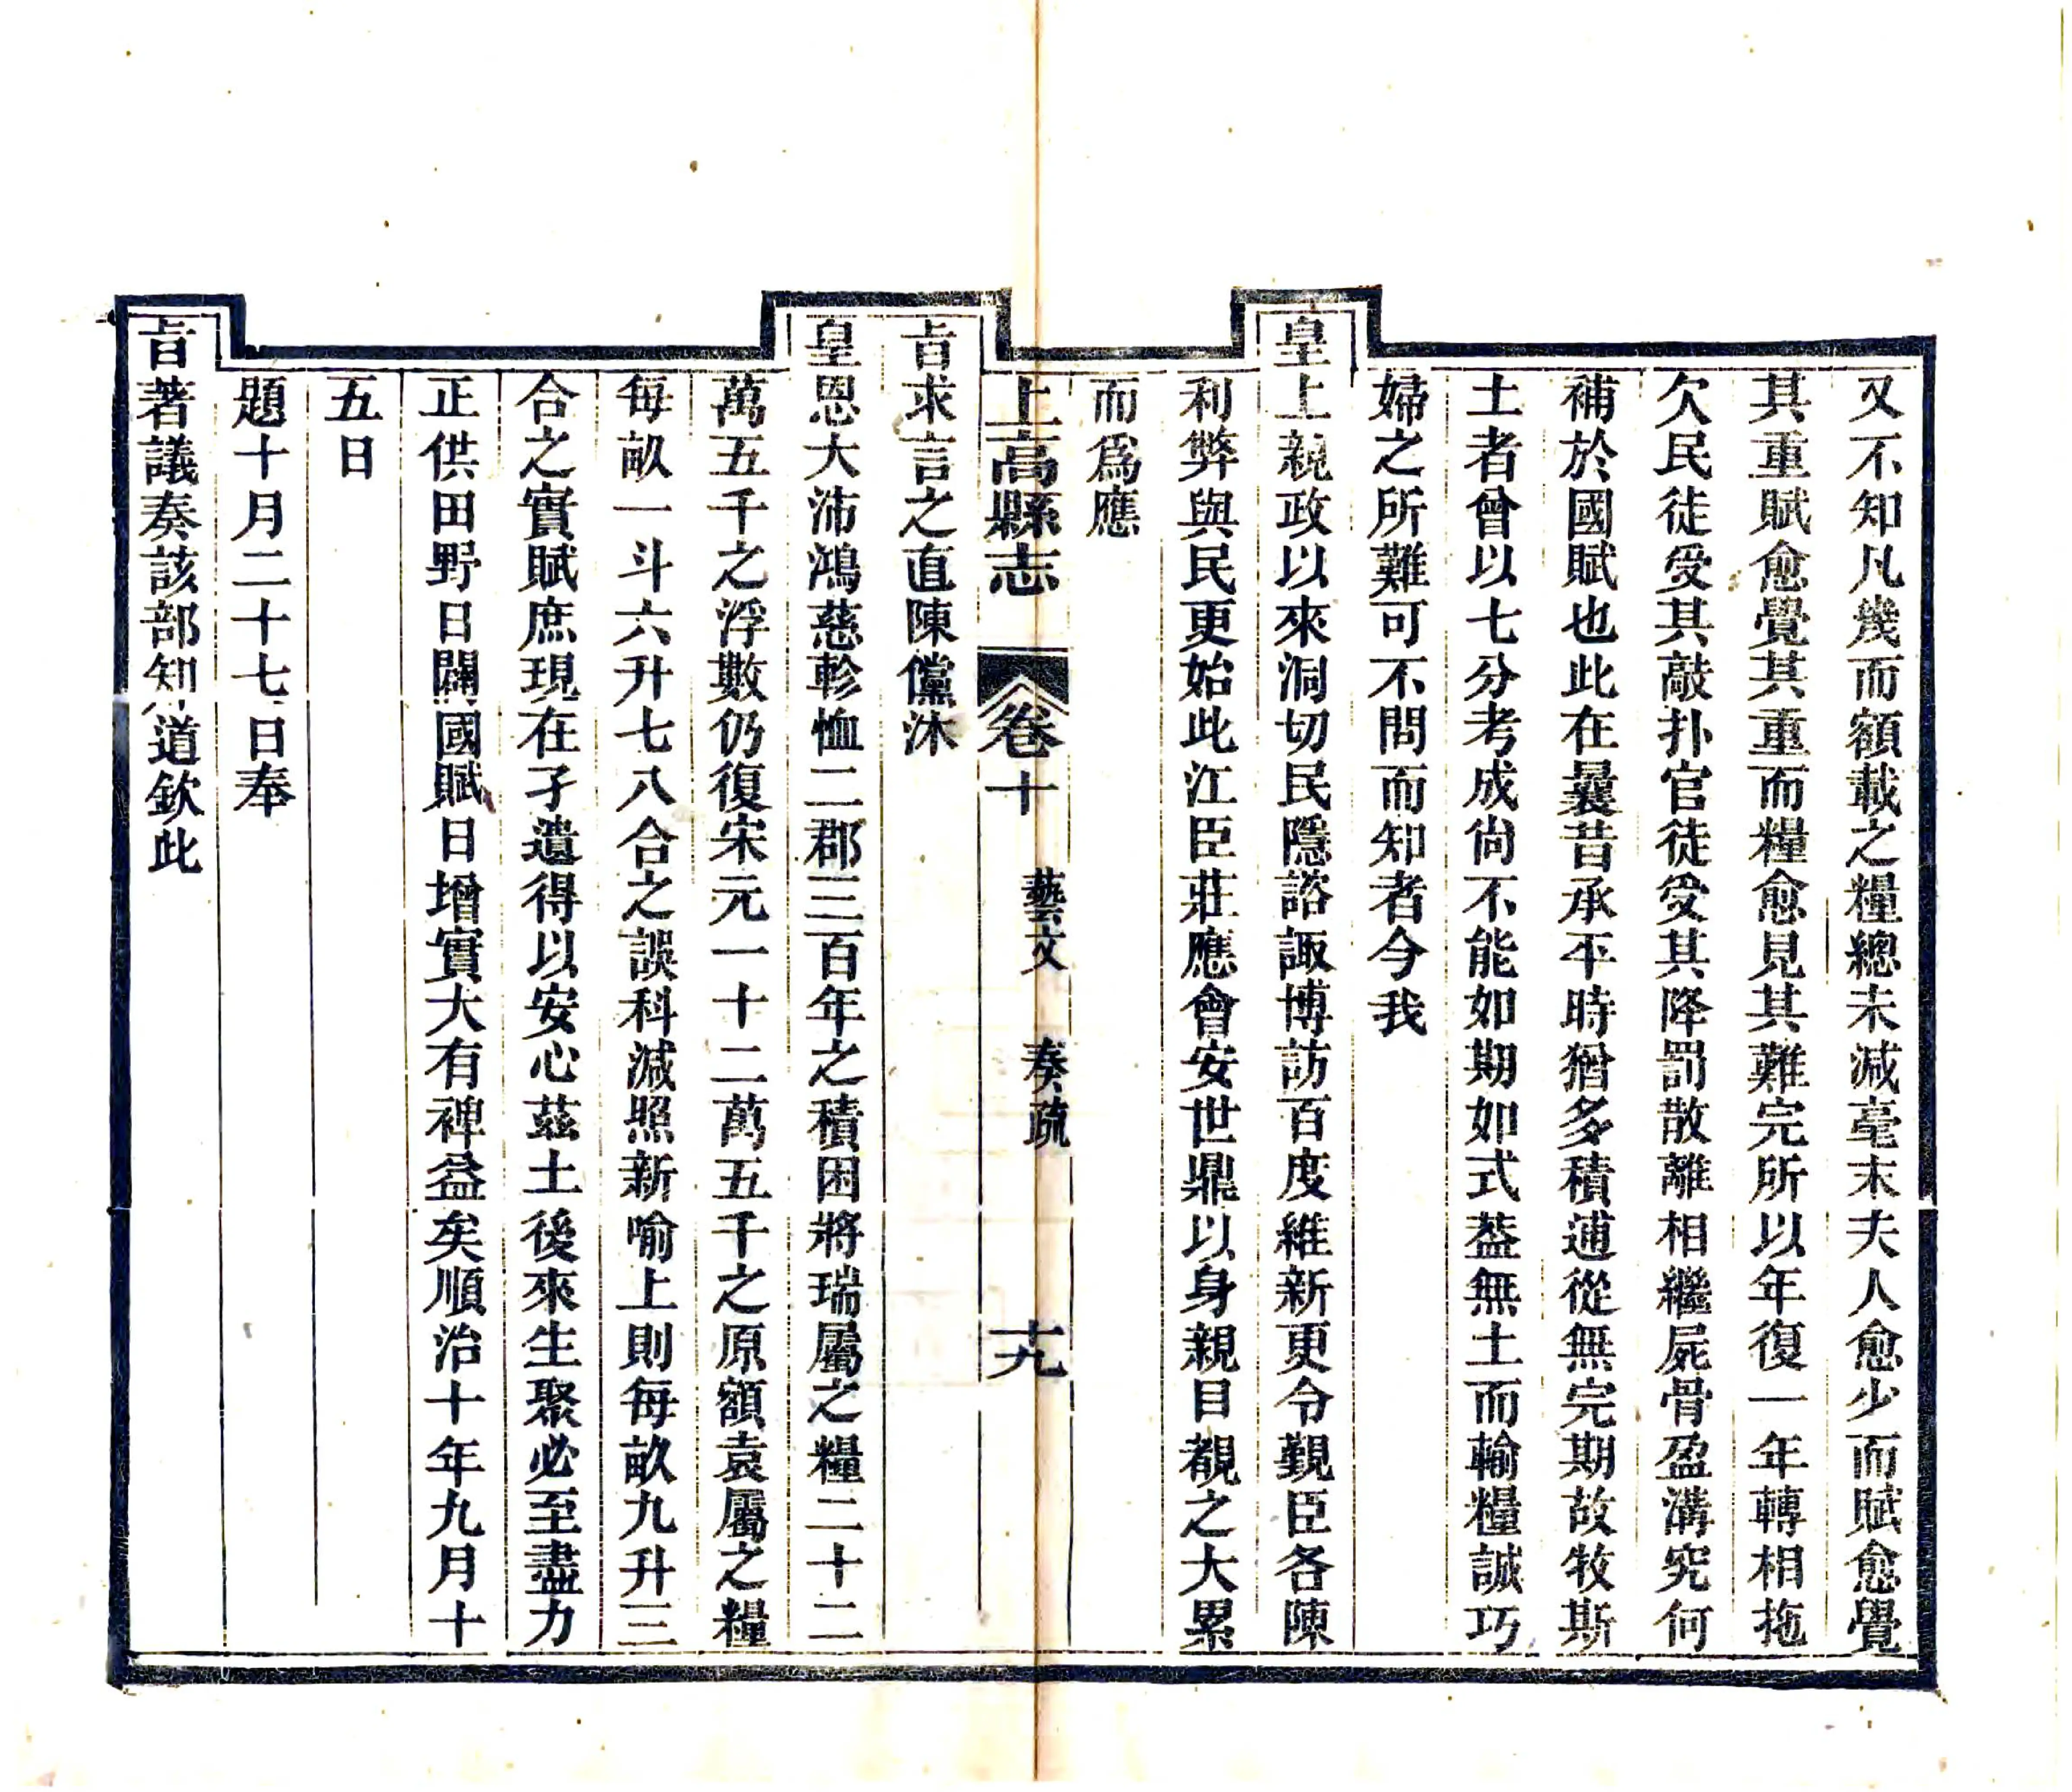 又不知凡幾而額載之糧總未減毫末夫人愈少而賦愈覺
其重賦愈覺其重而糧愈見其難完所以年復一年轉相拖
欠民徒受其敲扑官徒受其降罰散離相繼屍骨盈溝究何
補於國賦也此在曩昔承平時猶多積逋從無完期故牧斯
土者曾以七分考成尚不能如期如式葢無土而輸糧誠巧
婦之所難可不問而知者今我
皇上親政以來洞切民隱諮諏博訪百度維新更令覲臣各陳
利弊與民更始此江臣莊應會安世鼎以身親目覩之大累
而爲應
上高縣志 卷十 藝文 奏疏 十九
旨求言之直陳儻沐
皇恩大沛鴻慈軫恤二郡三百年之積困將瑞屬之糧二十二
萬五千之浮數仍復宋元一十二萬五千之原額袁屬之糧
每畝一斗六升七八合之誤科減照新喻上則每畝九升三
合之實賦庶現在孑遺得以安心茲土後來生聚必至盡力
正供田野日闢國賦日增實大有裨益矣順治十年九月十
五日
題十月二十七日奉
旨著議奏該部知道欽此